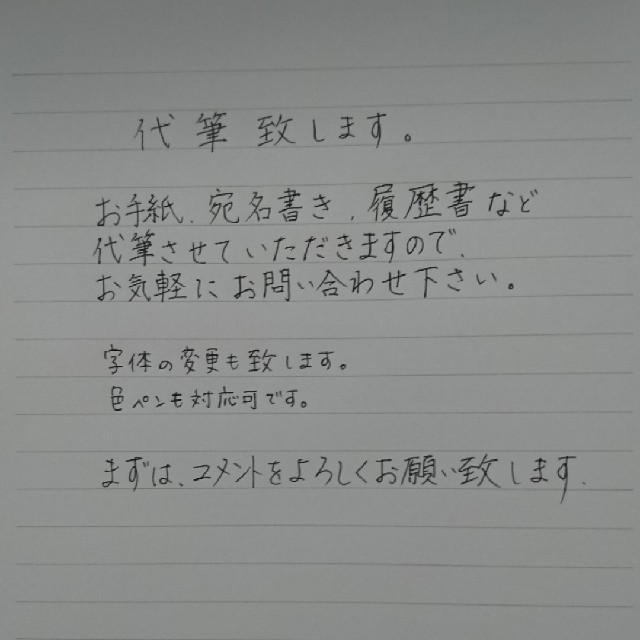 代筆致します。
お手紙、宛名書き、履歴書など
代筆させていただきますので、
お気軽にお問い合わせ下さい。
字体の変更も致します。
色ペンも対応可です。
まずは、コメントをよろしくお願い致します.